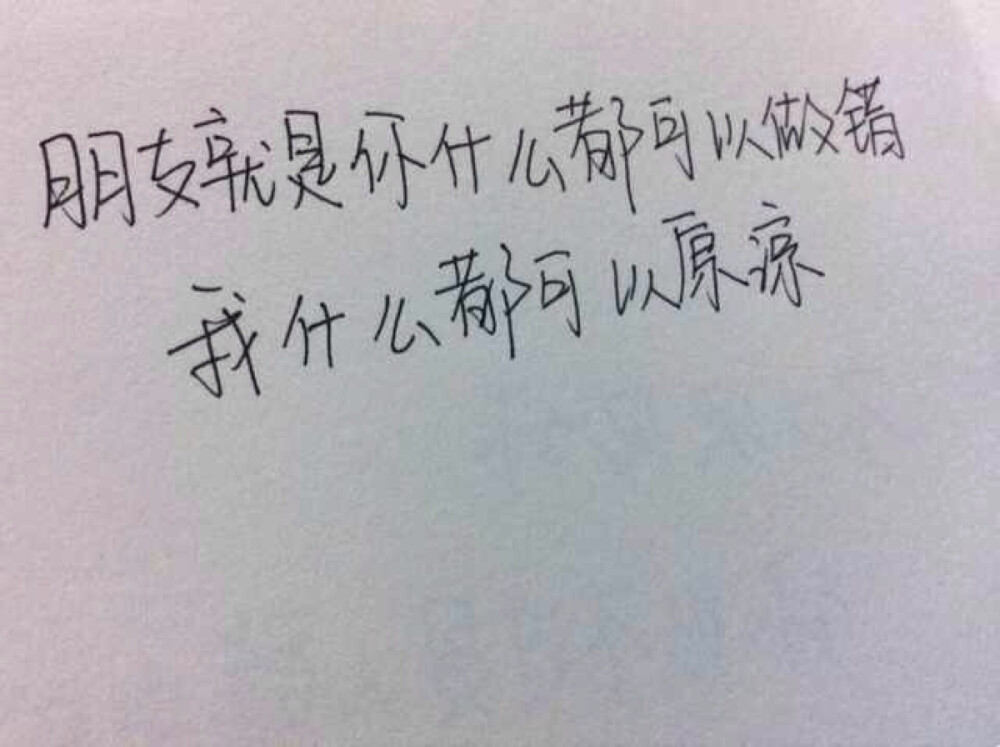 朋友就是你什么都可以做错
我什么都可以原谅